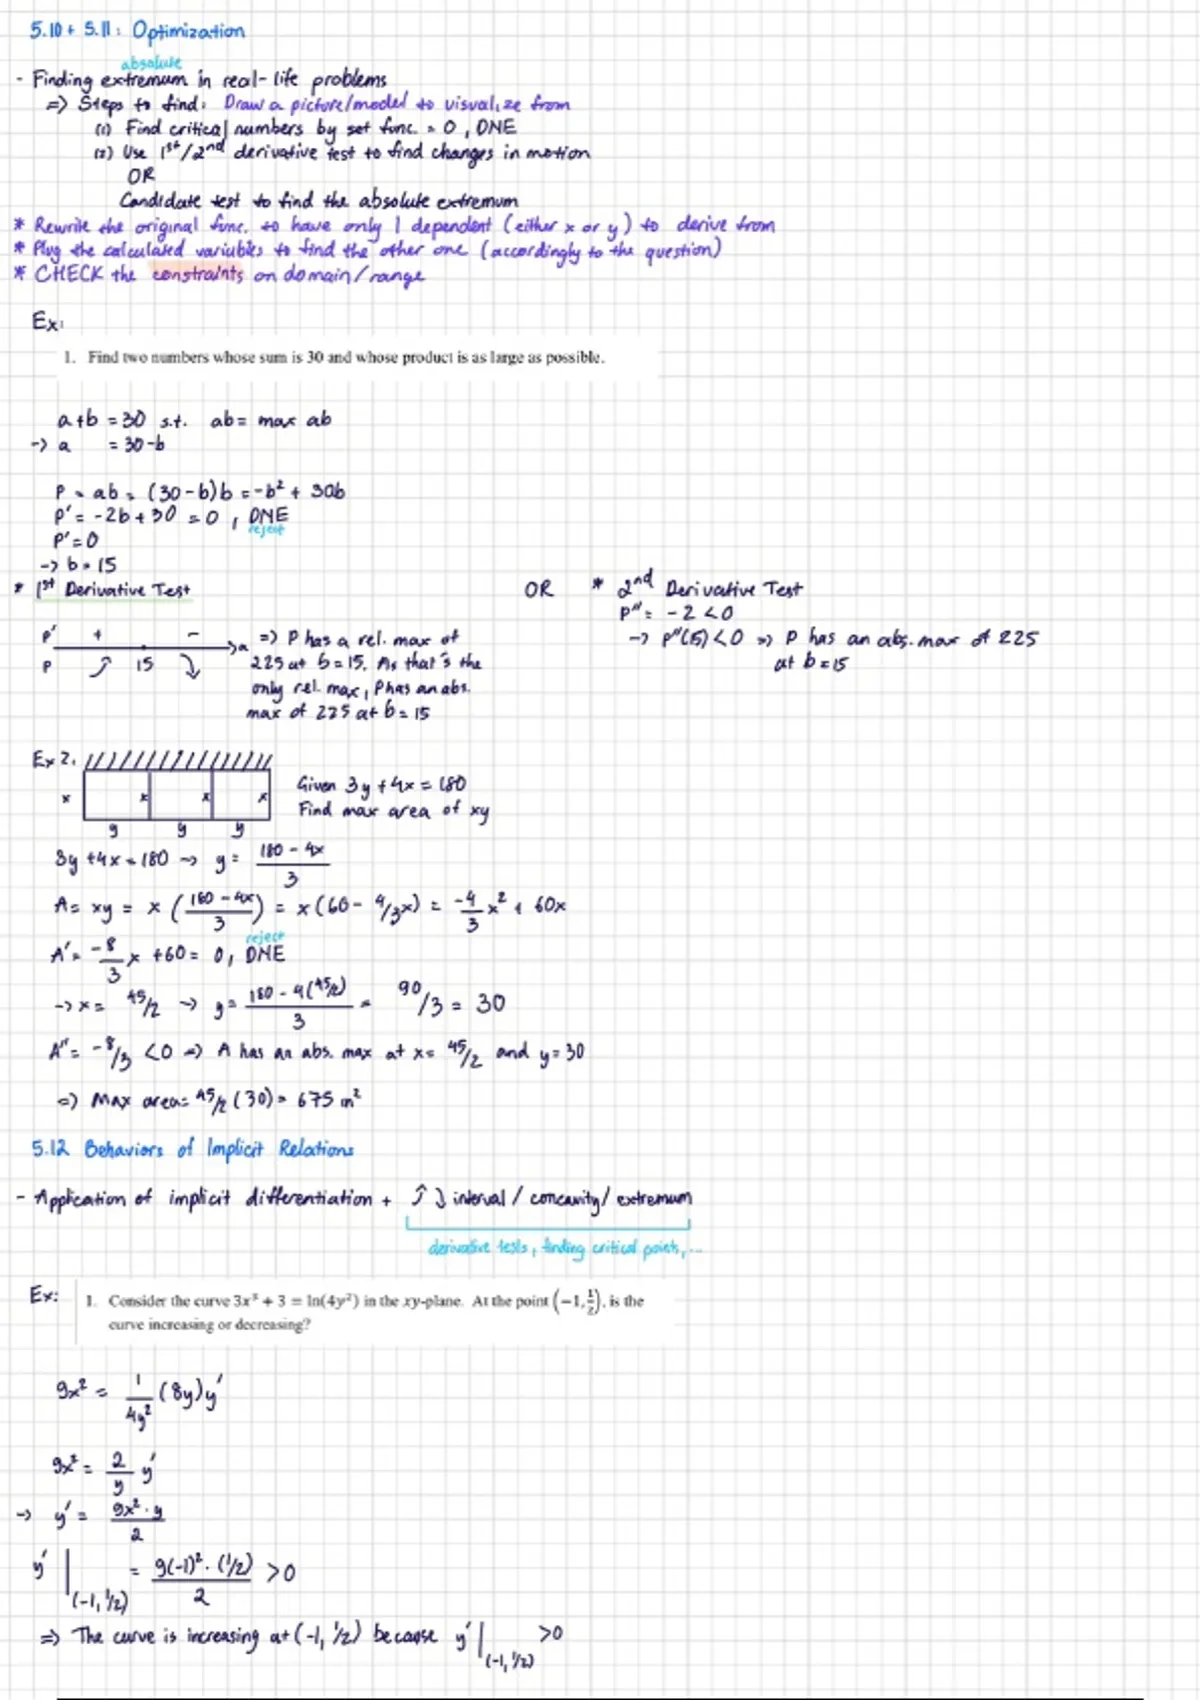 5.10 + 5.11: Optimization
absolute
- Finding extremum in real-life problems
=> Steps to find: Draw a picture/model to visualize from
(1) Find critical numbers by set func. = 0, DNE
(2) Use 1st/2nd derivative test to find changes in motion
OR
Candidate test to find the absolute extremum
* Rewrite the original func. to have only 1 dependent (either x or y) to derive from
* Plug the calculated variables to find the other one (accordingly to the question)
* CHECK the constraints on domain/range
Ex:
1. Find two numbers whose sum is 30 and whose product is as large as possible.
a+b = 30 s.t. ab = max ab
-> a = 30-b
P = ab = (30-b)b = -b² + 30b
P' = -2b + 30 = 0, DNE
reject
P' = 0
-> b = 15
* 1st Derivative Test
P' + -
P 15
=> P has a rel. max of
225 at b = 15. As that's the
only rel. max, P has an abs.
max of 225 at b = 15
OR
* 2nd Derivative Test
P'' = -2 < 0
-> P''(15) < 0 => P has an abs. max of 225
at b = 15
Ex 2.
x x x x
y y y
Given 3y + 4x = 180
Find max area of xy
3y + 4x = 180 -> y = (180 - 4x)/3
A = xy = x((180 - 4x)/3) = x(60 - 4/3x) = -4/3 x² + 60x
reject
A' = -8/3 x + 60 = 0, DNE
-> x = 45/2 -> y = (180 - 4(45/2))/3 = 90/3 = 30
A'' = -8/3 < 0 => A has an abs. max at x = 45/2 and y = 30
=> Max area = 45/2 (30) = 675 m²
5.12 Behaviors of Implicit Relations
- Application of implicit differentiation + ↑↓ interval / concavity / extremum
derivative tests, finding critical points, ...
Ex:
1. Consider the curve 3x³ + 3 = ln(4y²) in the xy-plane. At the point (-1, 1/2), is the
curve increasing or decreasing?
9x² = 1/4y² (8y)y'
9x² = 2/y y'
-> y' = 9x²·y/2
y' |(-1, 1/2) = 9(-1)²·(1/2)/2 > 0
=> The curve is increasing at (-1, 1/2) because y' |(-1, 1/2) > 0